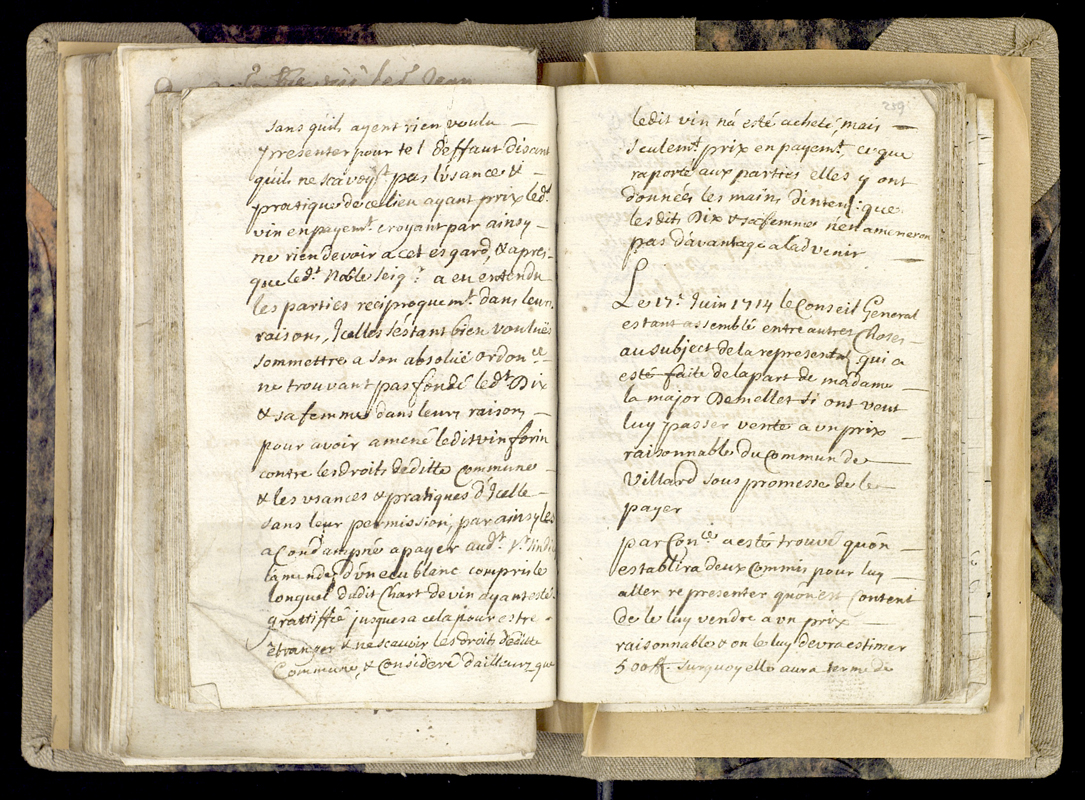 sans quils ayent rien voulu
presenter pour tel deffaut disant
quils ne scavoyt pas lusance &
pratique de ce lieu ayant prix led.t
vin en payem.t croyant par ainsy
ne rien devoir a cet esgard, & apres
que led.t Noble seig.r a eu entendu
les parties reciproquem.t dans leurs
raisons, Icelles s'estant bien voulues
sommettre a son absolue ordon.ce
ne trouvant pas fondé led.t Dix
& sa femme dans leurs raisons
pour avoir amené ledit vin forin
contre les droits deditte Commune
& les usances & pratiques d'Icelle
sans leur permission, par ainsy les
a Condampné a payer aud.t
lamende d'un ecu blanc compris le
longuel dudit Chart de vin ayant esté
grattiffié jusques a cela pour estre
étranger & ne scavoir les droits deditte
Commune, & Consideré dailleurs que
259
ledit vin n'a esté acheté, mais
seulem.t prix en payem.t, ce que
raporté aux parties elles y ont
données les mains d'intent: que
lesdits Dix & sa femme n'en ameneron
pas davantage a ladvenir
Le 17.e Juin 1714 le Conseil General
estant assemblé entre autres Choses
au subject de la represent.n qui a
esté faite de la part de madame
la major Demellet si ont veut
luy passer vente a un prix
raisonnable du Commun de
Villard sous promesse de le
payer
par Con.ce a esté trouvé quon
establira deux Commis pour luy
aller representer quon est Content
de le luy vendre a un prix
raisonnable & on le luy devra estimer
500 ff. surquoy elle aura terme de